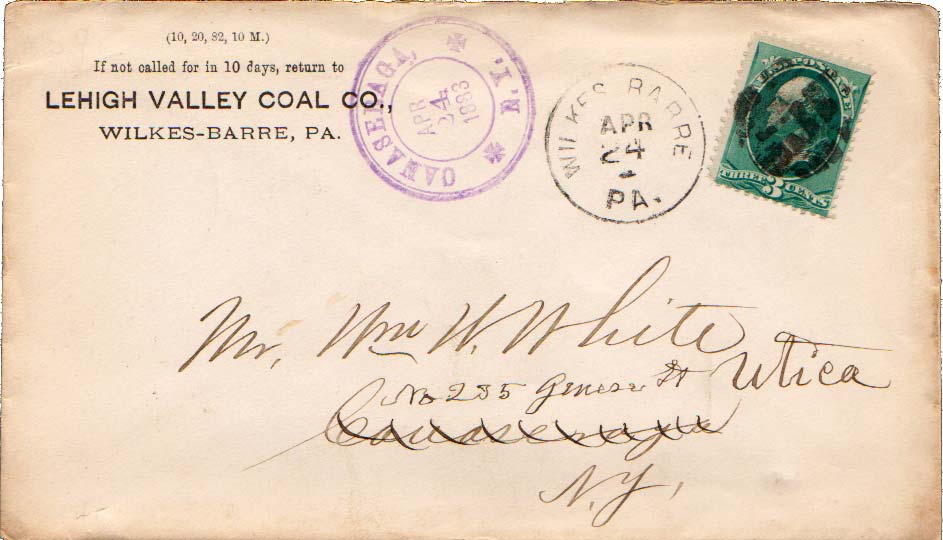 (10, 20, 82, 10 M.)
If not called for in 10 days, return to
LEHIGH VALLEY COAL CO.,
WILKES-BARRE, PA.
CANASERAGA, N.Y.
APR
24
1883
WILKES BARRE
APR
24
PA.
U.S. POSTAGE
THREE 3 CENTS
Mr, Wm W. White
No 235 Genese St Utica
Canaseraga
N.Y,